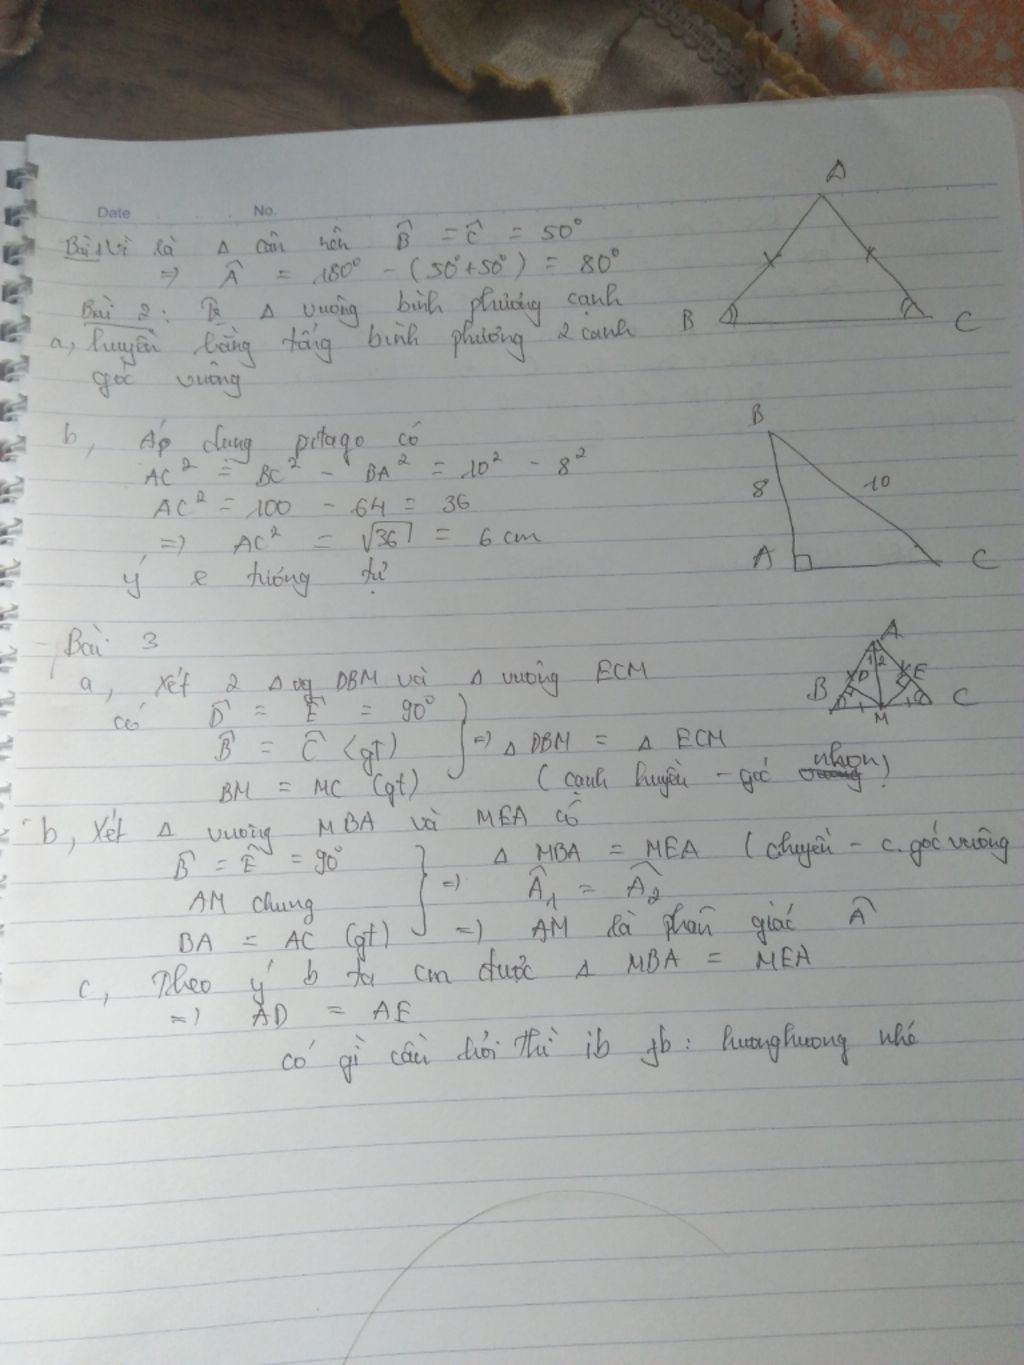 Date No.
Bài 1: Vì là Δ cân nên B̂ = Ĉ = 50°
=> Â = 180° - (50°+50°) = 80°
Bài 2: Δ vuông bình phương cạnh
a, huyền bằng tổng bình phương 2 cạnh
góc vuông
A
B
C
b, Áp dụng pitago có
AC² = BC² - BA² = 10² - 8²
AC² = 100 - 64 = 36
=> AC² = √36 = 6 cm
ý e tương tự
B
8
10
A
C
- Bài 3
a, Xét 2 Δ vg DBM và Δ vuông ECM
có D̂ = Ê = 90°
B̂ = Ĉ (gt)
BM = MC (gt)
=> Δ DBM = Δ ECM
(cạnh huyền - góc nhọn)
A
1 2
D E
B C
1 1
M
b, Xét Δ vuông MBA và MEA có
B̂ = Ê = 90°
AM chung
BA = AC (gt)
=> Δ MBA = MEA (chuyền - c. góc vuông
Â₁ = Â₂
=> AM là phân giác Â
c, Theo ý b ta cm được Δ MBA = MEA
=> AD = AE
có gì cần hỏi thì ib fb: huonghuong nhé